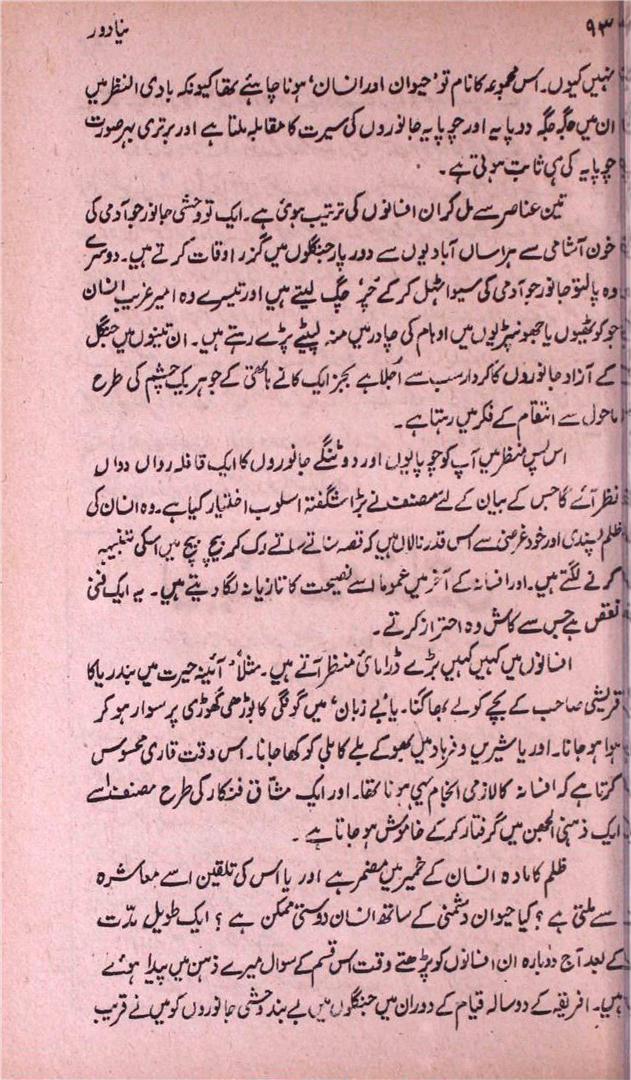 ۹۳ نیا دور
نہیں کیوں۔ اس مجموعہ کا نام تو ’حیوان اور انسان‘ ہونا چاہئے تھا کیونکہ بادی النظر میں
ان میں جگہ جگہ دوپایہ اور چوپایہ جانوروں کی سیرت کا مقابلہ ملتا ہے اور برتری بہر صورت
چوپایہ کی ہی ثابت ہوتی ہے۔
تین عناصر سے مل کر ان افسانوں کی ترتیب ہوئی ہے۔ ایک تو وحشی جانور جو آدمی کی
خون آشامی سے ہراساں آبادیوں سے دور پار جنگلوں میں گزر اوقات کرتے ہیں۔ دوسرے
وہ پالتو جانور جو آدمی کی سیوا ٹہل کر کے چر چگ لیتے ہیں اور تیسرے وہ امیر غریب انسان
جو کوٹھیوں یا جھونپڑیوں میں اوہام کی چادر میں منہ لپیٹے پڑے رہتے ہیں۔ ان تینوں میں جنگل
کے آزاد جانوروں کا کردار سب سے اُجلا ہے بجز ایک کانے ہاتھی کے جو ہر یک چشم کی طرح
ماحول سے انتقام کے فکر میں رہتا ہے۔
اس پس منظر میں آپ کو چوپایوں اور دو ٹنگے جانوروں کا ایک قافلہ رواں دواں
نظر آئے گا جس کے بیان کے لئے مصنف نے بڑا شگفتہ اسلوب اختیار کیا ہے۔ وہ انسان کی
ظلم پسندی اور خود غرضی سے اس قدر نالاں ہیں کہ قصہ سناتے سناتے رک کر بیچ بیچ میں اسکی تنبیہہ
کرنے لگتے ہیں۔ اور افسانہ کے آخر میں عموماً اسے نصیحت کا تازیانہ لگا دیتے ہیں۔ یہ ایک فنی
نقص ہے جس سے کاش وہ احتراز کرتے۔
افسانوں میں کہیں کہیں بڑے ڈرامائی منظر آتے ہیں۔ مثلاً ’آئینہ حیرت میں بندریا کا
قریشی صاحب کے بچے کو لے بھاگنا۔ یا ’بے زبان‘ میں گونگی کا بوڑھی گھوڑی پر سوار ہو کر
ہوا ہو جانا۔ اور یا شیریں و فرہاد میں بھوکے بلے کا بلی کو کھا جانا۔ اس وقت قاری محسوس
کرتا ہے کہ افسانہ کا لازمی انجام یہی ہونا تھا۔ اور ایک مشاق فنکار کی طرح مصنف اسے
ایک ذہنی الجھن میں گرفتار کر کے خاموش ہو جاتا ہے۔
ظلم کا مادہ انسان کے خمیر میں مضمر ہے اور یا اس کی تلقین اسے معاشرہ
سے ملتی ہے؟ کیا حیوان دشمنی کے ساتھ انسان دوستی ممکن ہے؟ ایک طویل مدت
کے بعد آج دوبارہ ان افسانوں کو پڑھتے وقت اس قسم کے سوال میرے ذہن میں پیدا ہوئے
ہیں۔ افریقہ کے دو سالہ قیام کے دوران میں جنگلوں میں بے بند وحشی جانوروں کو میں نے قریب